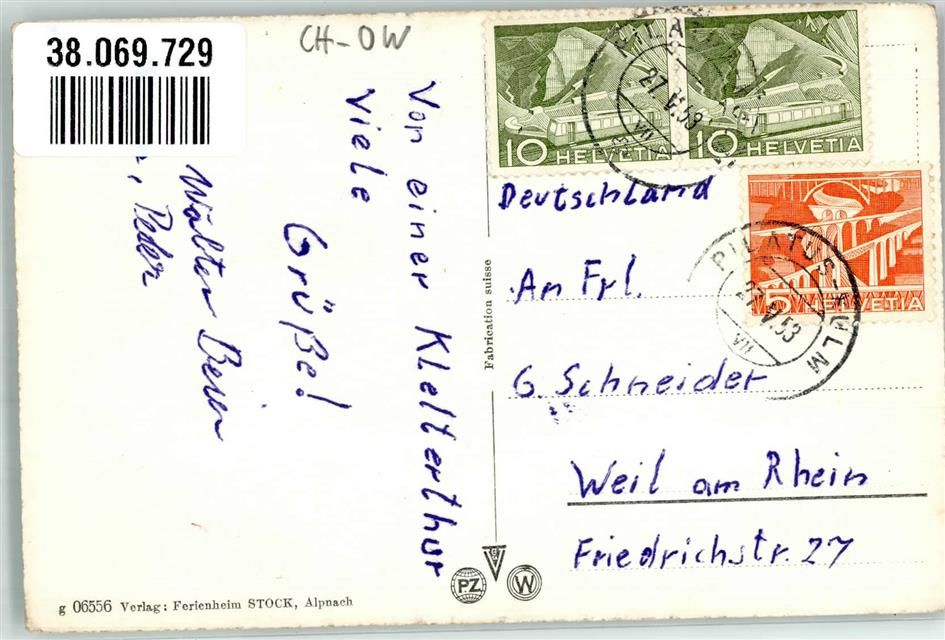 38.069.729
CH-OW
Von einer Kletterthur
viele
Grüße!
Walter
Peder
10 HELVETIA
10 HELVETIA
5 HELVETIA
PILATUS-KULM
27.V.53
VII
Deutschland
An Frl.
G. Schneider
Weil am Rhein
Friedrichstr. 27
Fabrication suisse
PZ
W
g 06556 Verlag: Ferienheim STOCK, Alpnach